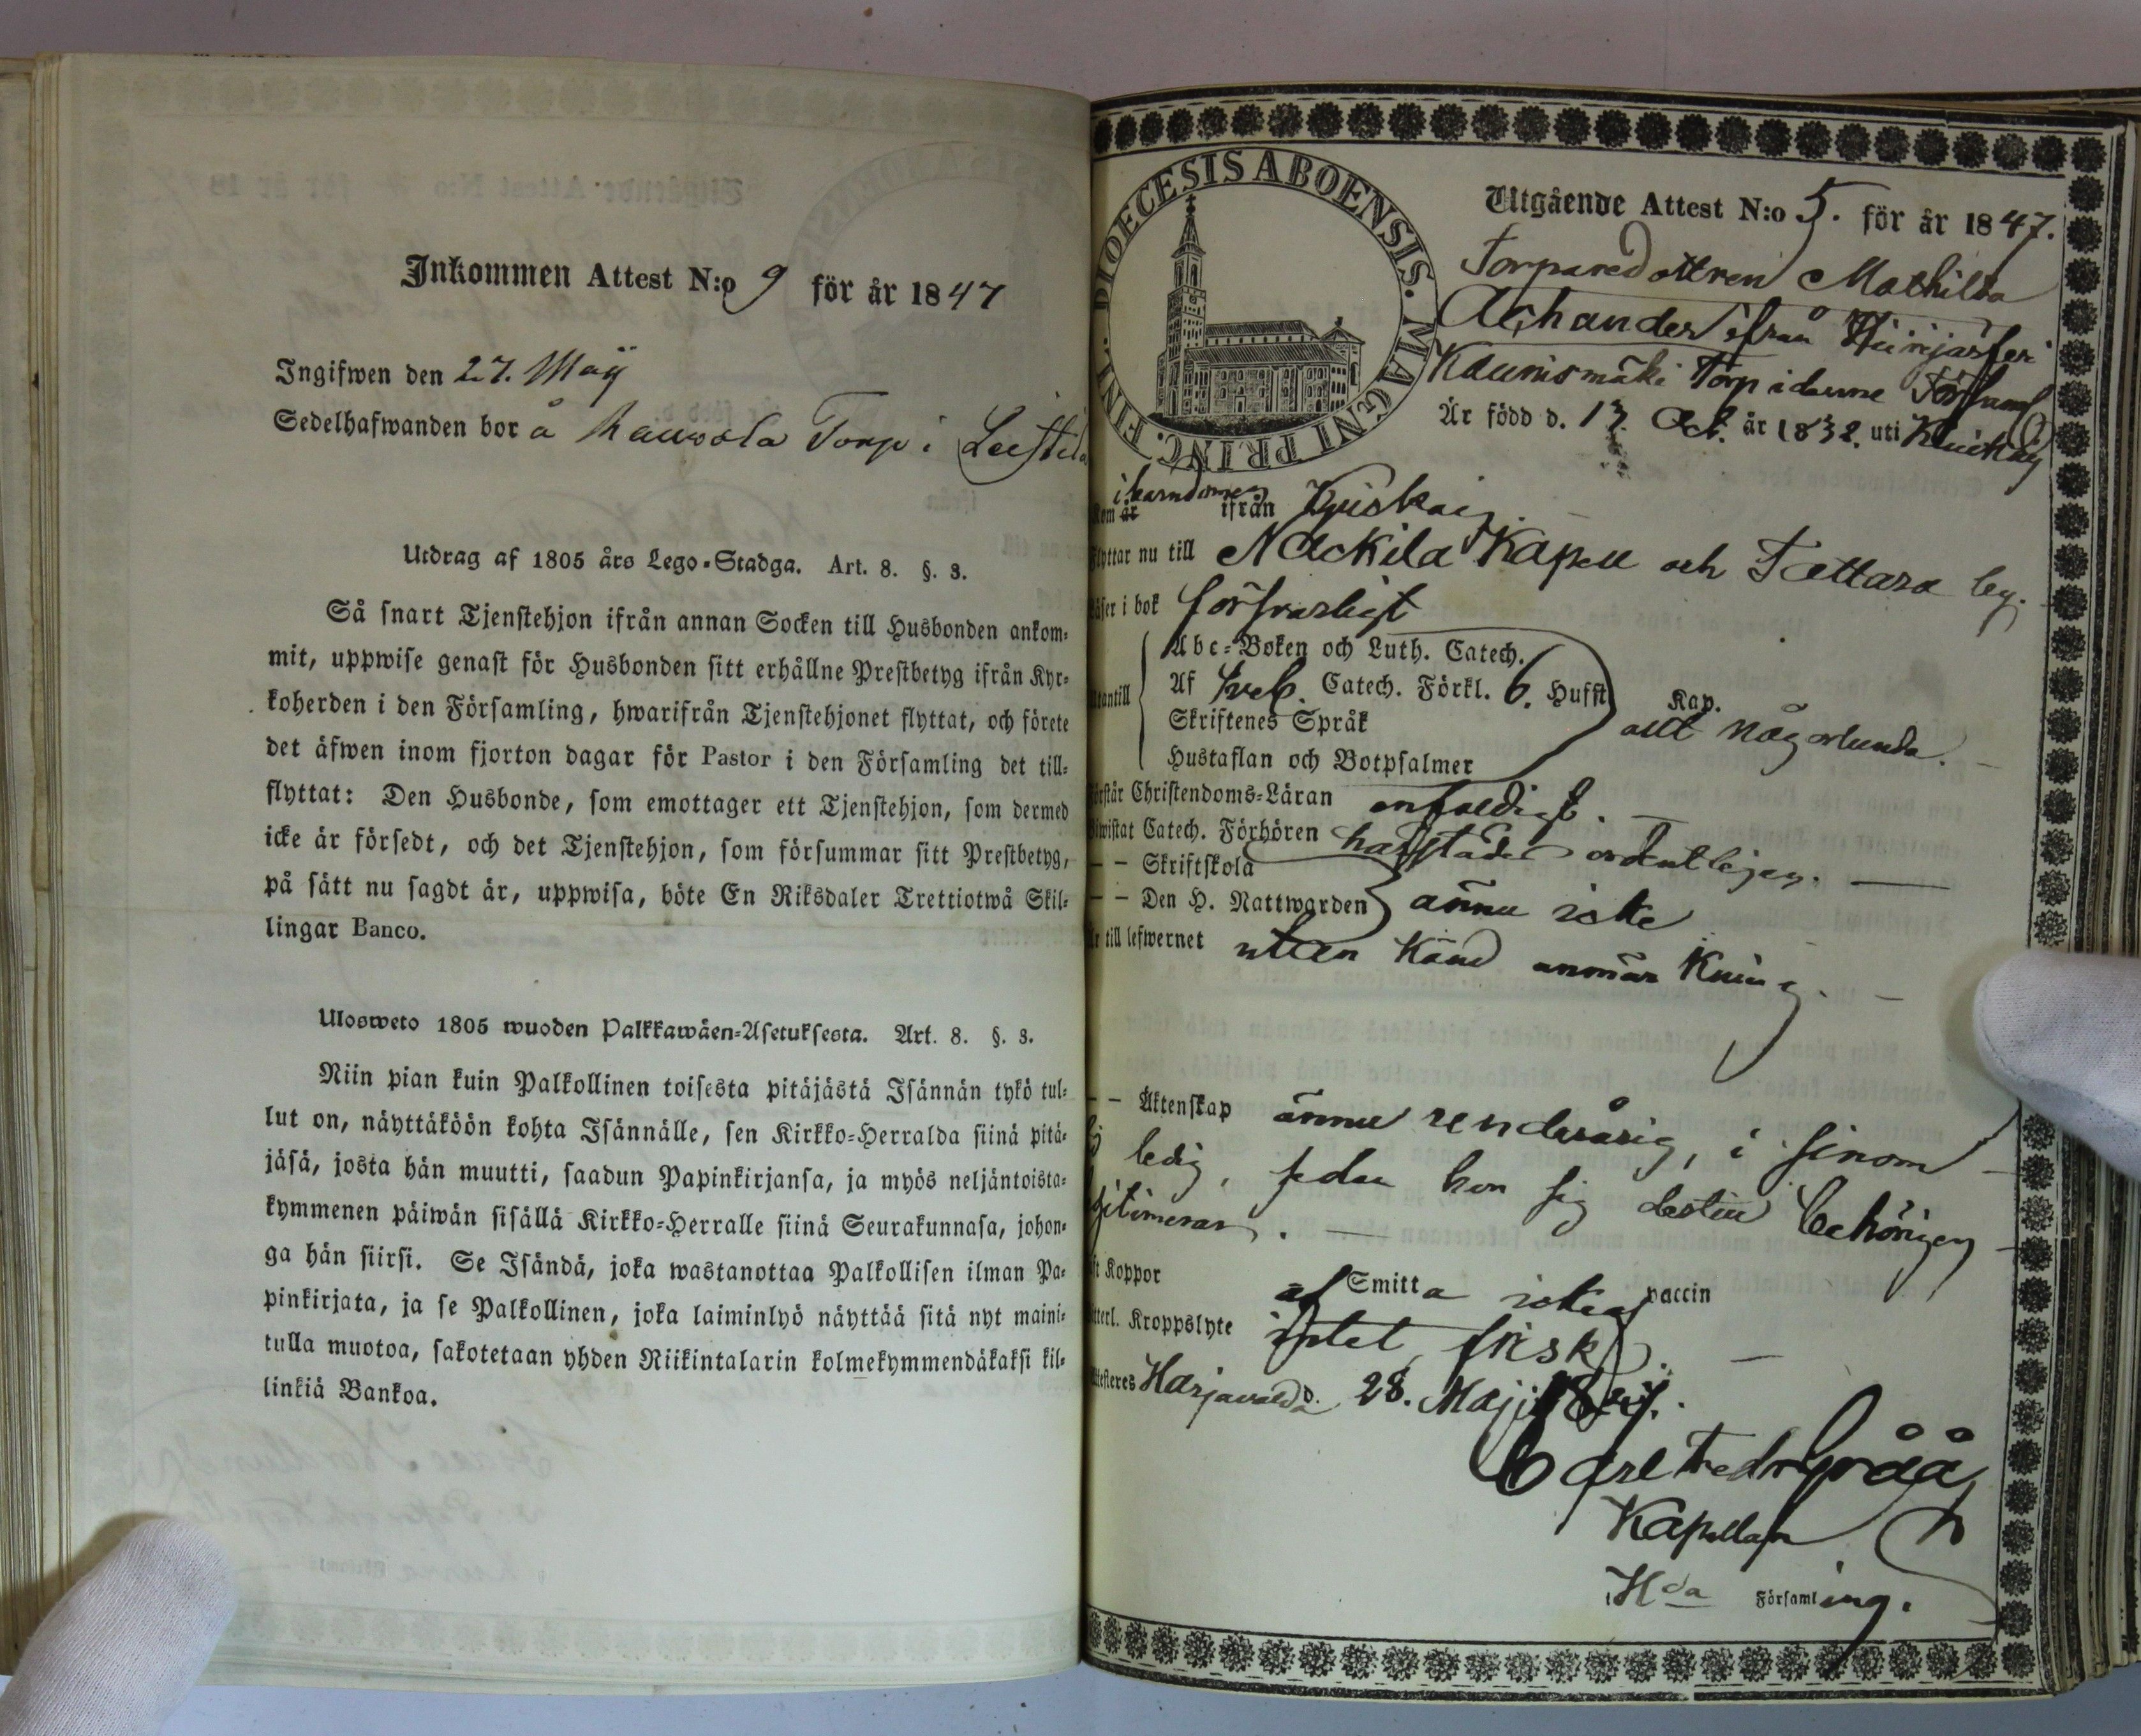 Inkommen Attest N:o 9 för år 1847
Ingifwen den 27. Maij
Sedelhafwanden bor å Torp i
Utdrag af 1805 års Lego-Stadga. Art. 8. §. 3.
Så snart Tjenstehjon ifrån annan Socken till Husbonden ankom-
mit, uppwise genast för Husbonden sitt erhållne Prestbetyg ifrån Kyr-
koherden i den Församling, hwarifrån Tjenstehjonet flyttat, och förete
det äfwen inom fjorton dagar för Pastor i den Församling det till-
flyttat: Den Husbonde, som emottager ett Tjenstehjon, som dermed
icke är försedt, och det Tjenstehjon, som försummar sitt Prestbetyg,
på sätt nu sagdt är, uppwisa, böte En Riksdaler Trettiotwå Skil-
lingar Banco.
Ulosweto 1805 wuoden Palkkawäen-Asetuksesta. Art. 8. §. 3.
Niin pian kuin Palkollinen toisesta pitäjästä Isännän tykö tul-
lut on, näyttäköön kohta Isännälle, sen Kirkko-Herralda siinä pitä-
jäsä, josta hän muutti, saadun Papinkirjansa, ja myös neljäntoista-
kymmenen päiwän sisällä Kirkko-Herralle siinä Seurakunnasa, johon-
ga hän siirsi. Se Isändä, joka wastanottaa Palkollisen ilman Pa-
pinkirjata, ja se Palkollinen, joka laiminlyö näyttää sitä nyt maini-
tulla muotoa, sakotetaan yhden Riikintalarin kolmekymmendäkaksi kil-
linkiä Bankoa.
DIOECESIS ABOENSIS. MAGNI PRINC. FINL.
Utgående Attest N:o 5. för år 1847.
Torparedottren Mathilda
ifrån
Kaunismäki Torp i denne Församl
Är född d. 13. Oct. år 1832. uti
i barndomen
ifrån
flyttar nu till Kapell och Tattara by.
Läser i bok försvarligt
Abc-Boken och Luth. Catech.
Af Sveb. Catech. Förkl. 6. Hufst. Kap.
Skriftenes Språk allt någorlunda.
Hustaflan och Botpsalmer
Förstår Christendoms-Läran enfaldigt.
Biwistat Catech. Förhören ordentligen.
– – Skriftskola
– – Den H. Nattwarden ännu icke
Är till lefwernet utan känd anmärkning.
– – Äktenskap ännu renderårig, i sinom
ledig, sedan hon sig dertill behörigen
legitimerar.
Haft Koppor af Smitta icke af vaccin
Kroppslyte intet, frisk
Attesteres Harjavalda d. 28. Maji 1847.
Carl Fredr Gråå
Kapellan
Hda Församling.